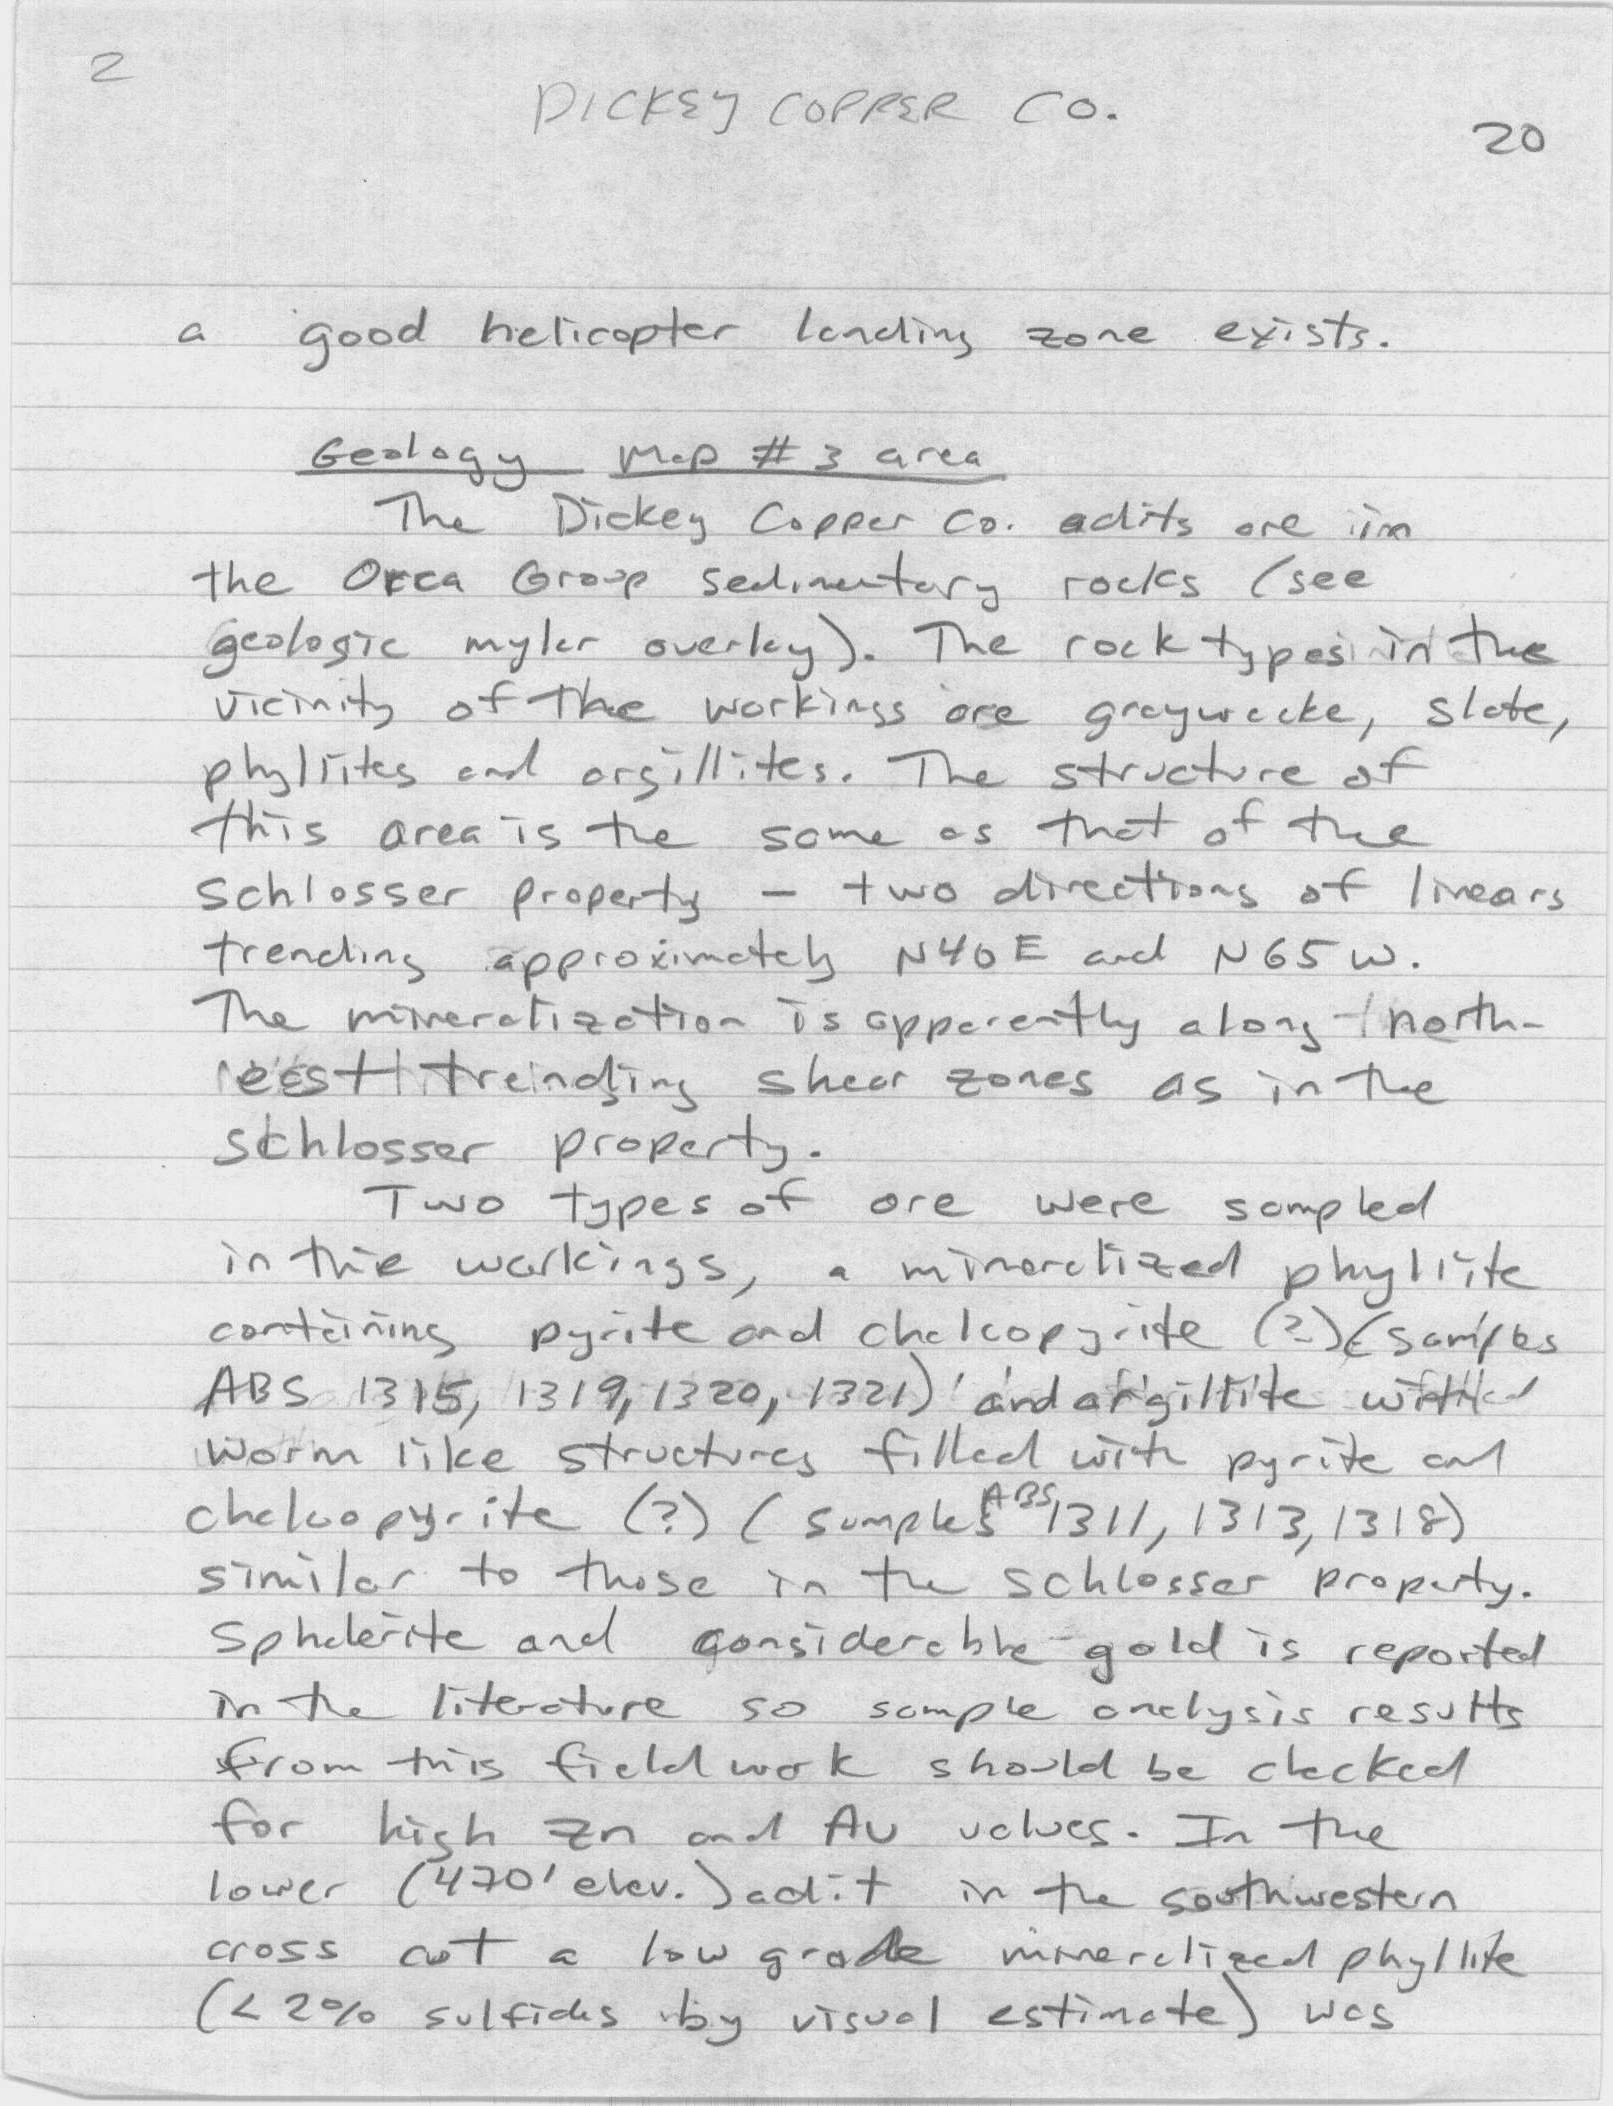 2
DICKEY COPPER CO.
20
a good helicopter landing zone exists.
Geology Map #3 area
The Dickey Copper Co. adits are in
the Orca Group sedimentary rocks (see
geologic mylar overlay). The rock types in the
vicinity of the workings are graywacke, slate,
phyllites and argillites. The structure of
this area is the same as that of the
Schlosser property - two directions of linears
trending approximately N40E and N65W.
The mineralization is apparently along north-
east trending shear zones as in the
Schlosser property.
Two types of ore were sampled
in the workings, a mineralized phyllite
containing pyrite and chalcopyrite (?) (samples
ABS 1315, 1319, 1320, 1321) and argillite with
worm like structures filled with pyrite and
chalcopyrite (?) (samples ABS 1311, 1313, 1318)
similar to those in the Schlosser property.
Sphalerite and considerable gold is reported
in the literature so sample analysis results
from this field work should be checked
for high Zn and Au values. In the
lower (470' elev.) adit in the southwestern
cross cut a low grade mineralized phyllite
(<2% sulfides by visual estimate) was